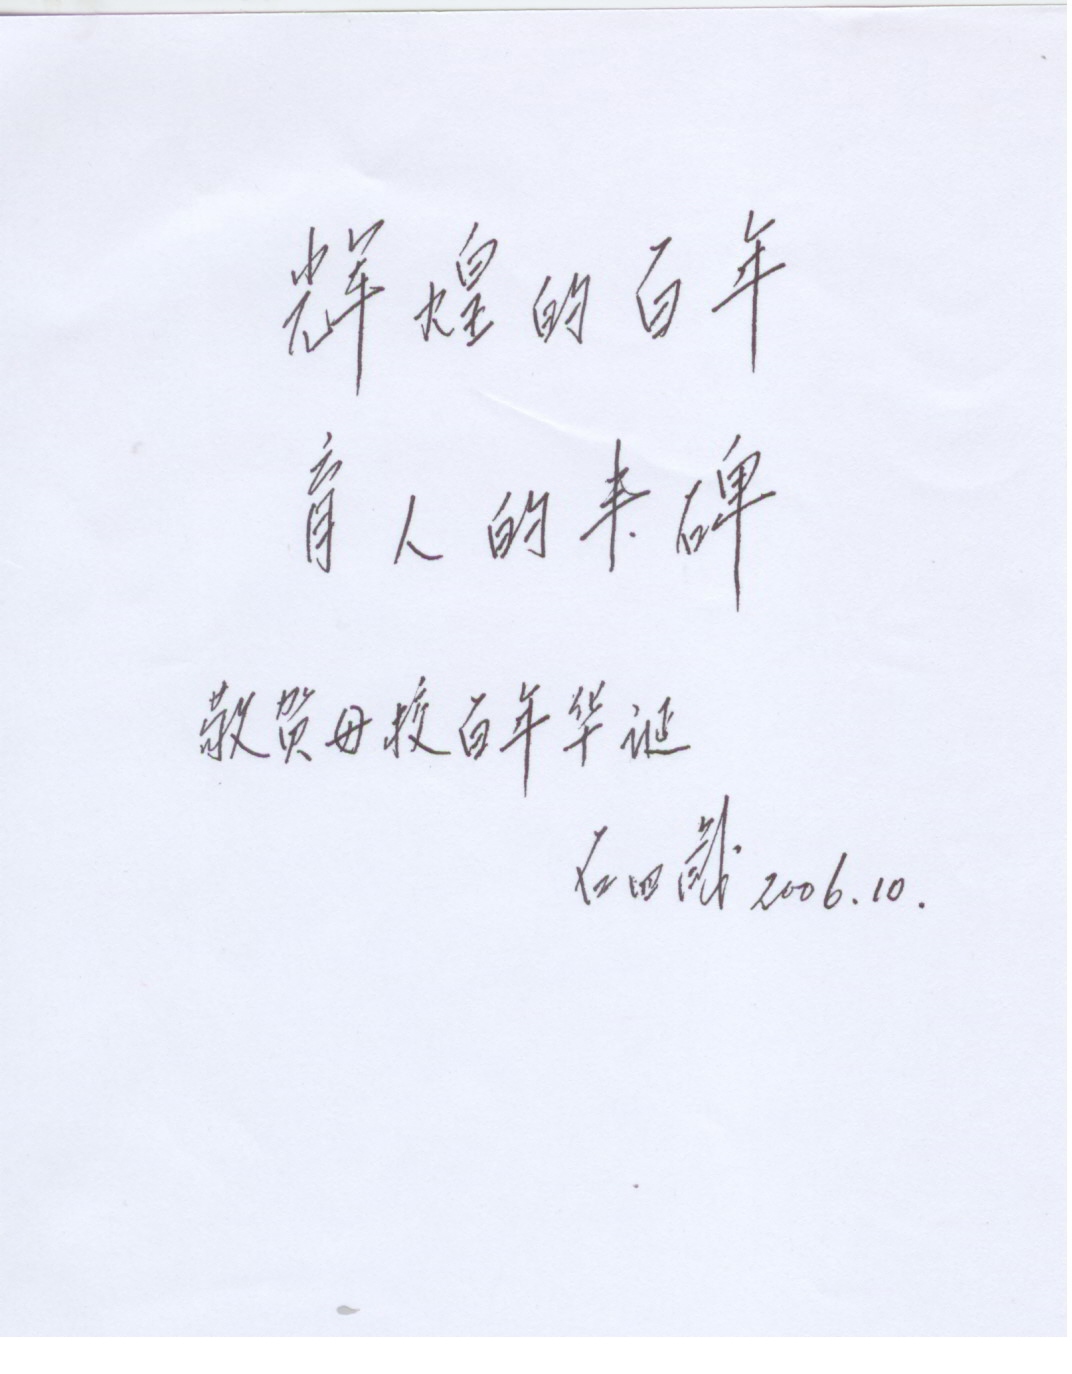 辉煌的百年
育人的丰碑
敬贺母校百年华诞
石四箴 2006.10.